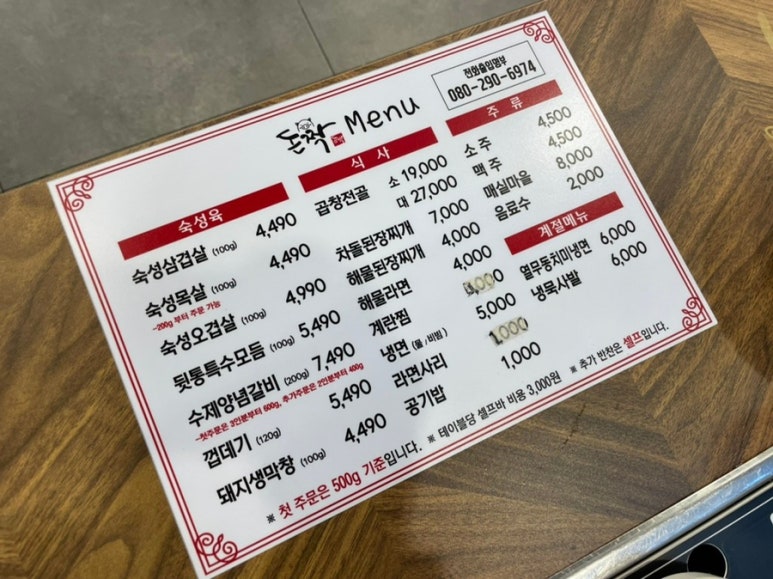 돈짝 Menu
전화출입명부
080-290-6974
숙성육
숙성삼겹살 (100g) 4,490
숙성목살 (100g) 4,490
~200g 부터 주문 가능
숙성오겹살 (100g) 4,990
뒷통특수모듬 (100g) 5,490
수제양념갈비 (200g) 7,490
~첫주문은 3인분부터 600g, 추가주문은 2인분부터 400g
껍데기 (120g) 5,490
돼지생막창 (100g) 4,490
식 사
곱창전골 소 19,000
대 27,000
차돌된장찌개 7,000
해물된장찌개 4,000
해물라면 4,000
계란찜
냉면 (물/비빔) 5,000
라면사리 1,000
공기밥 1,000
주 류
소 주 4,500
맥 주 4,500
매실마을 8,000
음료수 2,000
계절메뉴
열무동치미냉면 6,000
냉묵사발 6,000
※ 첫 주문은 500g 기준입니다. ※ 테이블당 셀프바 비용 3,000원 ※ 추가 반찬은 셀프입니다.